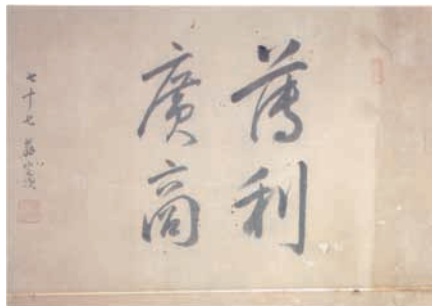 薄利
廣商
七十七